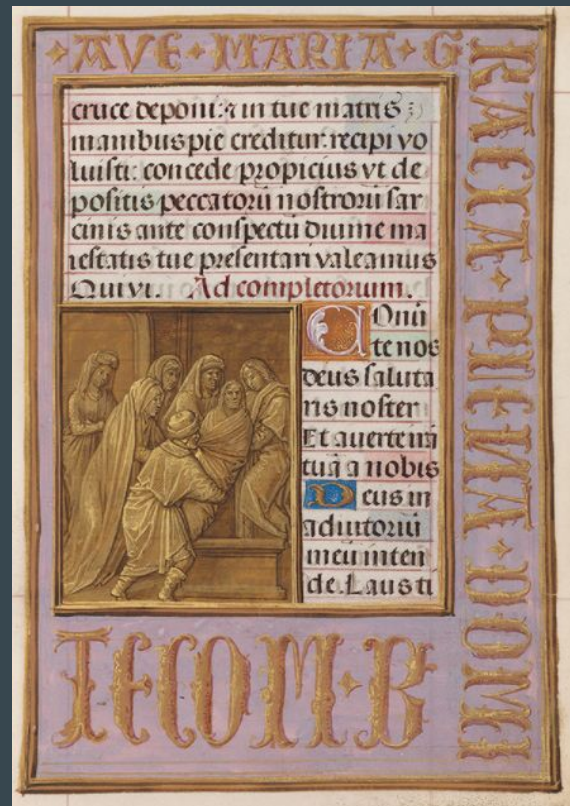 AVE MARIA G
RACIA PLENA DOMI
TECOM B
cruce deponi: ⁊ in tue matris
manibus pie creditur: recipi vo
luisti: concede propicius vt de
positis peccatorū nostrorū sar
cinis ante conspectū diuine ma
iestatis tue presentari valeamus
Qui vi. Ad completorium.
Conū
te nos
deus saluta
ris noster
Et auerte irā
tuā a nobis
Deus in
adiutoriū
meū inten
de. Laus ti